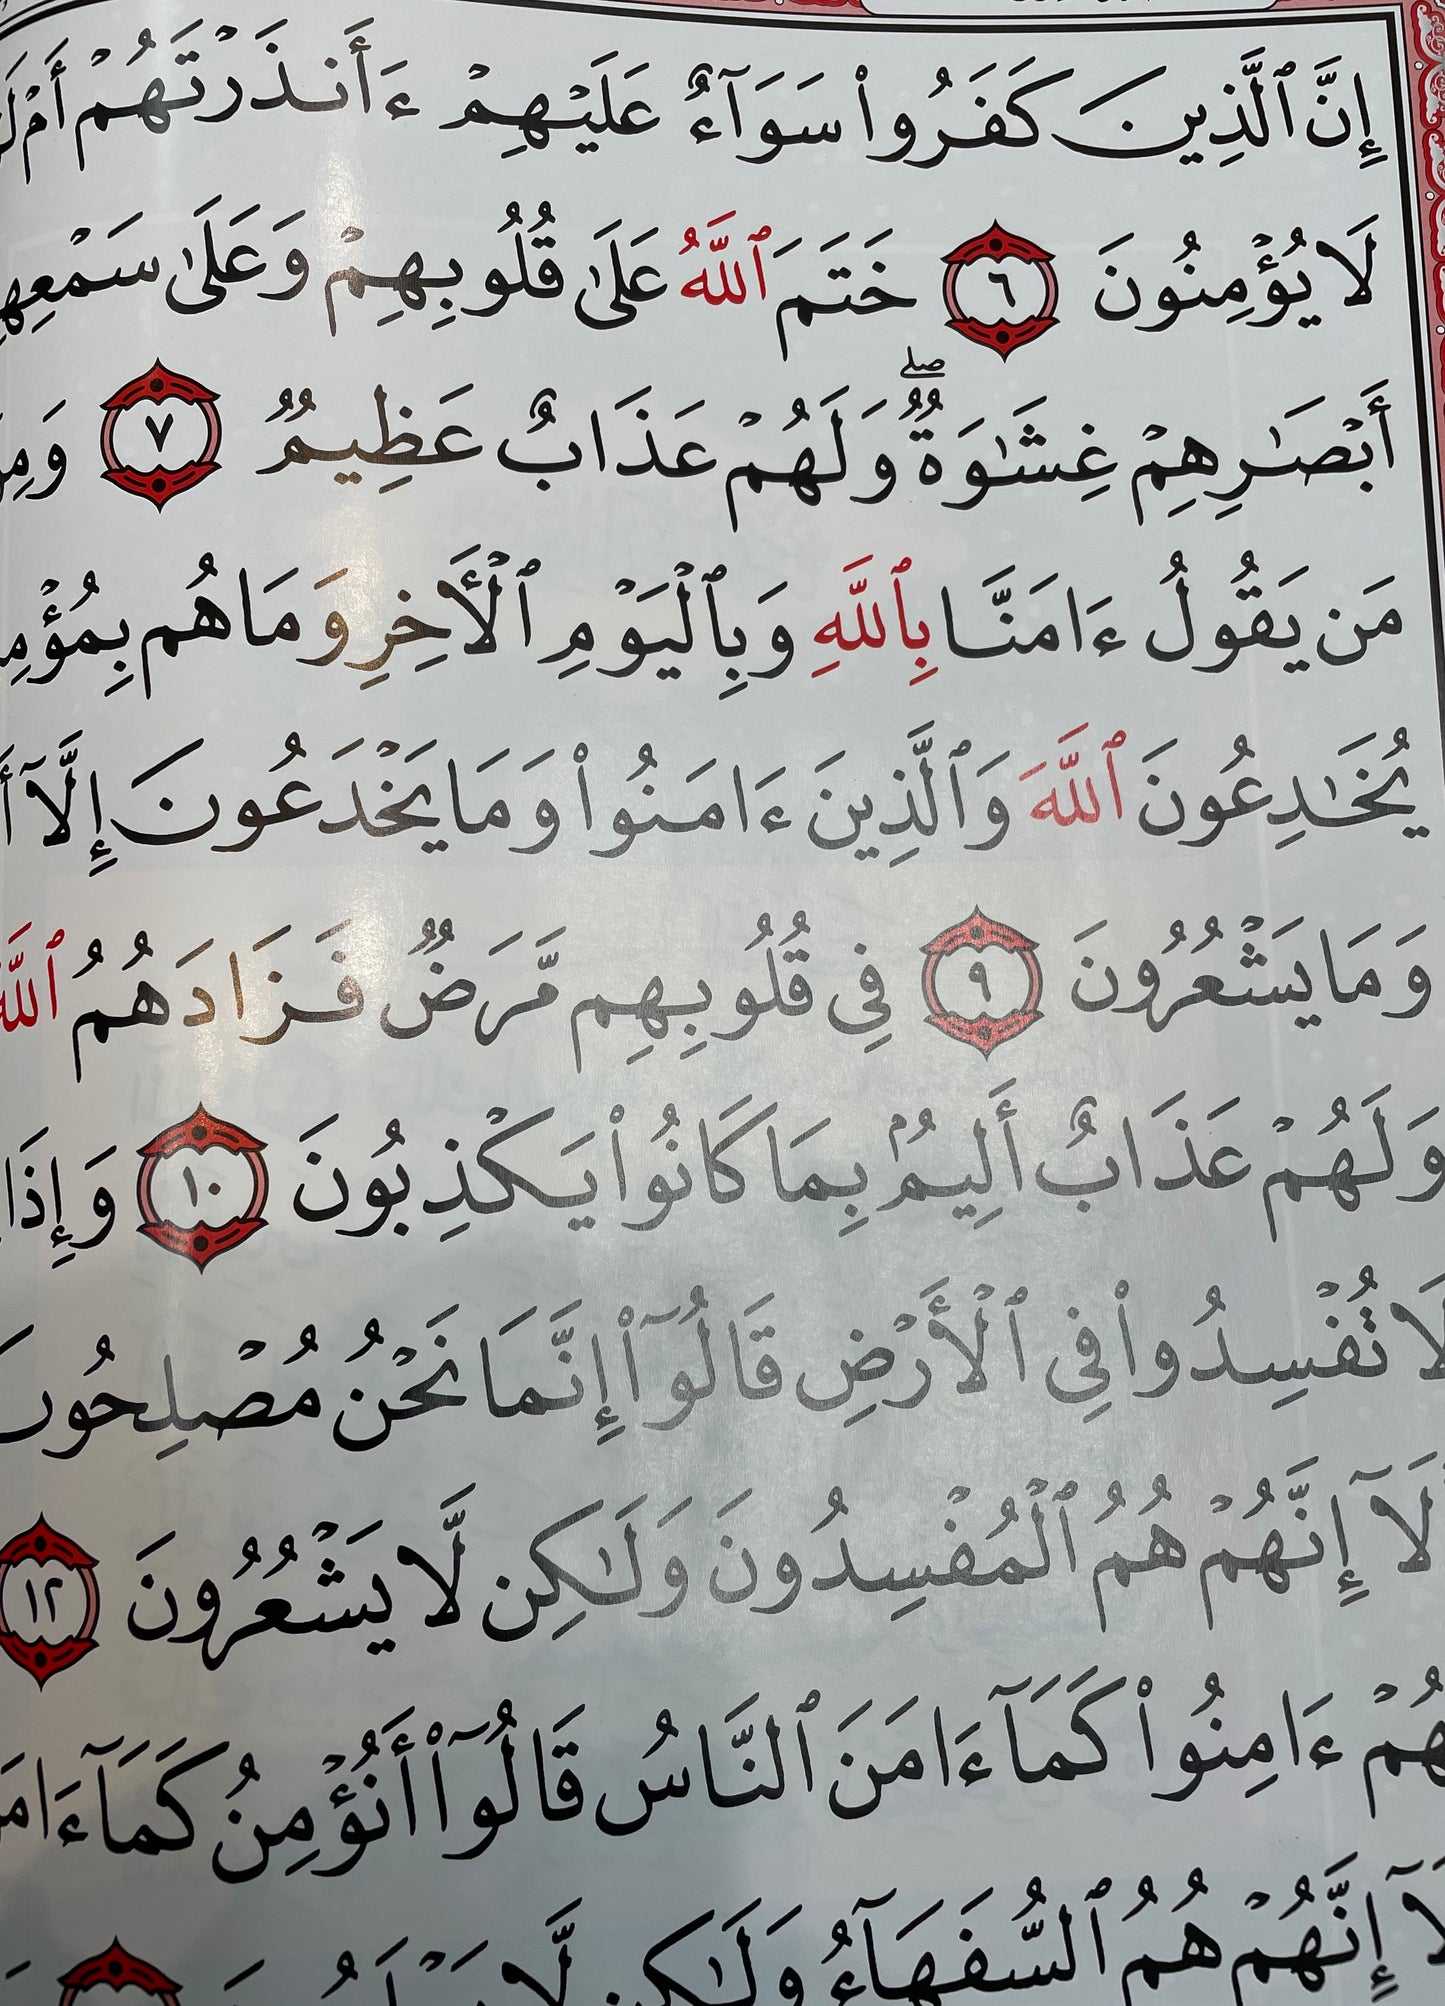 إِنَّ ٱلَّذِينَ كَفَرُواْ سَوَآءٌ عَلَيْهِمْ ءَأَنذَرْتَهُمْ أَمْ
لَا يُؤْمِنُونَ ٦ خَتَمَ ٱللَّهُ عَلَىٰ قُلُوبِهِمْ وَعَلَىٰ سَمْعِهِ
أَبْصَـٰرِهِمْ غِشَـٰوَةٌۖ وَلَهُمْ عَذَابٌ عَظِيمٌ ٧ وَمِ
مَن يَقُولُ ءَامَنَّا بِٱللَّهِ وَبِٱلْيَوْمِ ٱلْأَخِرِ وَمَا هُم بِمُؤْمِ
يُخَـٰدِعُونَ ٱللَّهَ وَٱلَّذِينَ ءَامَنُواْ وَمَا يَخْدَعُونَ إِلَّآ أَ
وَمَا يَشْعُرُونَ ٩ فِى قُلُوبِهِم مَّرَضٌ فَزَادَهُمُ ٱللَّه
وَلَهُمْ عَذَابٌ أَلِيمٌۢ بِمَا كَانُواْ يَكْذِبُونَ ١٠ وَإِذَا
لَا تُفْسِدُواْ فِى ٱلْأَرْضِ قَالُوٓاْ إِنَّمَا نَحْنُ مُصْلِحُون
لَآ إِنَّهُمْ هُمُ ٱلْمُفْسِدُونَ وَلَـٰكِن لَّا يَشْعُرُونَ ١٢
هُمْ ءَامِنُواْ كَمَآ ءَامَنَ ٱلنَّاسُ قَالُوٓاْ أَنُؤْمِنُ كَمَآ ءَامَ
لَآ إِنَّهُمْ هُمُ ٱلسُّفَهَآءُ وَلَـٰكِن لَّا